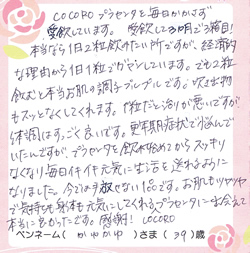 COCORO プラセンタを毎日かかさず
愛飲しています。 愛飲して9カ月で3箱目!
本当なら1日2粒飲みたい所ですが、経済的
な理由から1日1粒でガマンしています。でも2粒
飲むと本当お肌の調子プルプルです。吹き出物
もスッとなくしてくれます。1粒だと治りが悪いですが
体調はすごく良いです。更年期症状で悩んで
いたんですが、プラセンタを飲み始めてからスッキリ
なくなり毎日イキイキ元気に生活を送れるように
なりました。今では手放せない1品です。お肌もツヤツヤ
で気持ちも身体も元気にしてくれるプラセンタに出会えて
本当に良かったです。感謝! COCORO
ペンネーム( かゆかゆ )さま ( 39 )歳